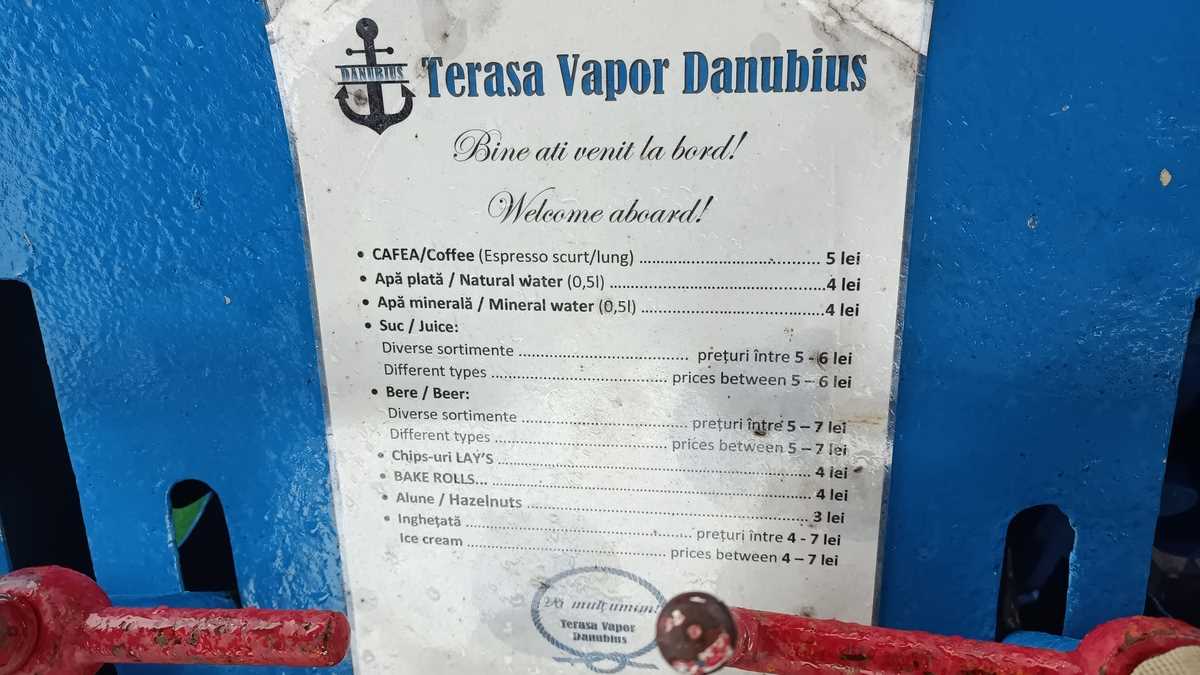 DANUBIUS
Terasa Vapor Danubius
Bine ati venit la bord!
Welcome aboard!
• CAFEA/Coffee (Espresso scurt/lung) ........................................ 5 lei
• Apă plată / Natural water (0,5l) ................................................4 lei
• Apă minerală / Mineral water (0,5l) .........................................4 lei
• Suc / Juice:
Diverse sortimente ...................................... prețuri între 5 - 6 lei
Different types ....................................... prices between 5 – 6 lei
• Bere / Beer:
Diverse sortimente ...................................... prețuri între 5 – 7 lei
Different types ....................................... prices between 5 – 7 lei
• Chips-uri LAY'S ...................................................................... 4 lei
• BAKE ROLLS... ....................................................................... 4 lei
• Alune / Hazelnuts ................................................................. 3 lei
• Inghețată .................................................. prețuri între 4 - 7 lei
Ice cream ............................................ prices between 4 – 7 lei
Vă mulțumim!
Terasa Vapor
Danubius